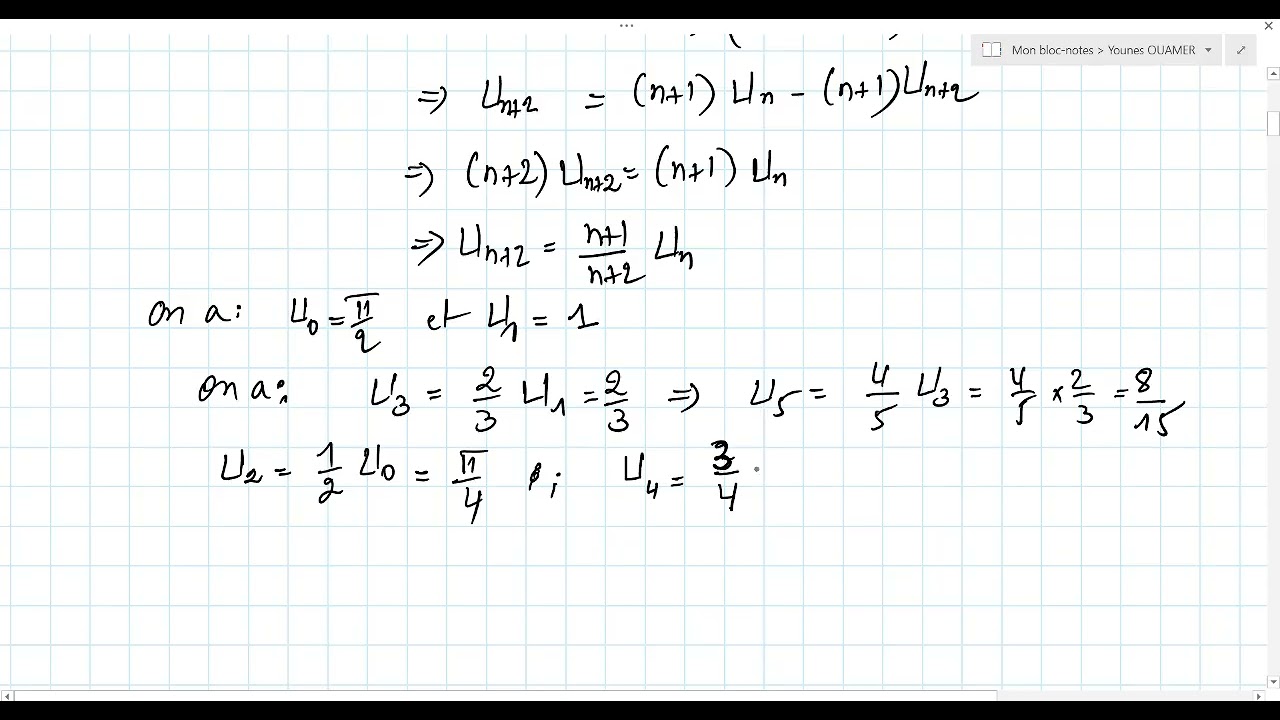 Mon bloc-notes > Younes OUAMER
⇒ U_{n+2} = (n+1) U_n - (n+1) U_{n+2}
⇒ (n+2) U_{n+2} = (n+1) U_n
⇒ U_{n+2} = \frac{n+1}{n+2} U_n
on a: U_0 = \frac{π}{2} et U_1 = 1
on a: U_3 = \frac{2}{3} U_1 = \frac{2}{3} ⇒ U_5 = \frac{4}{5} U_3 = \frac{4}{5} × \frac{2}{3} = \frac{8}{15}
U_2 = \frac{1}{2} U_0 = \frac{π}{4} ; U_4 = \frac{3}{4}